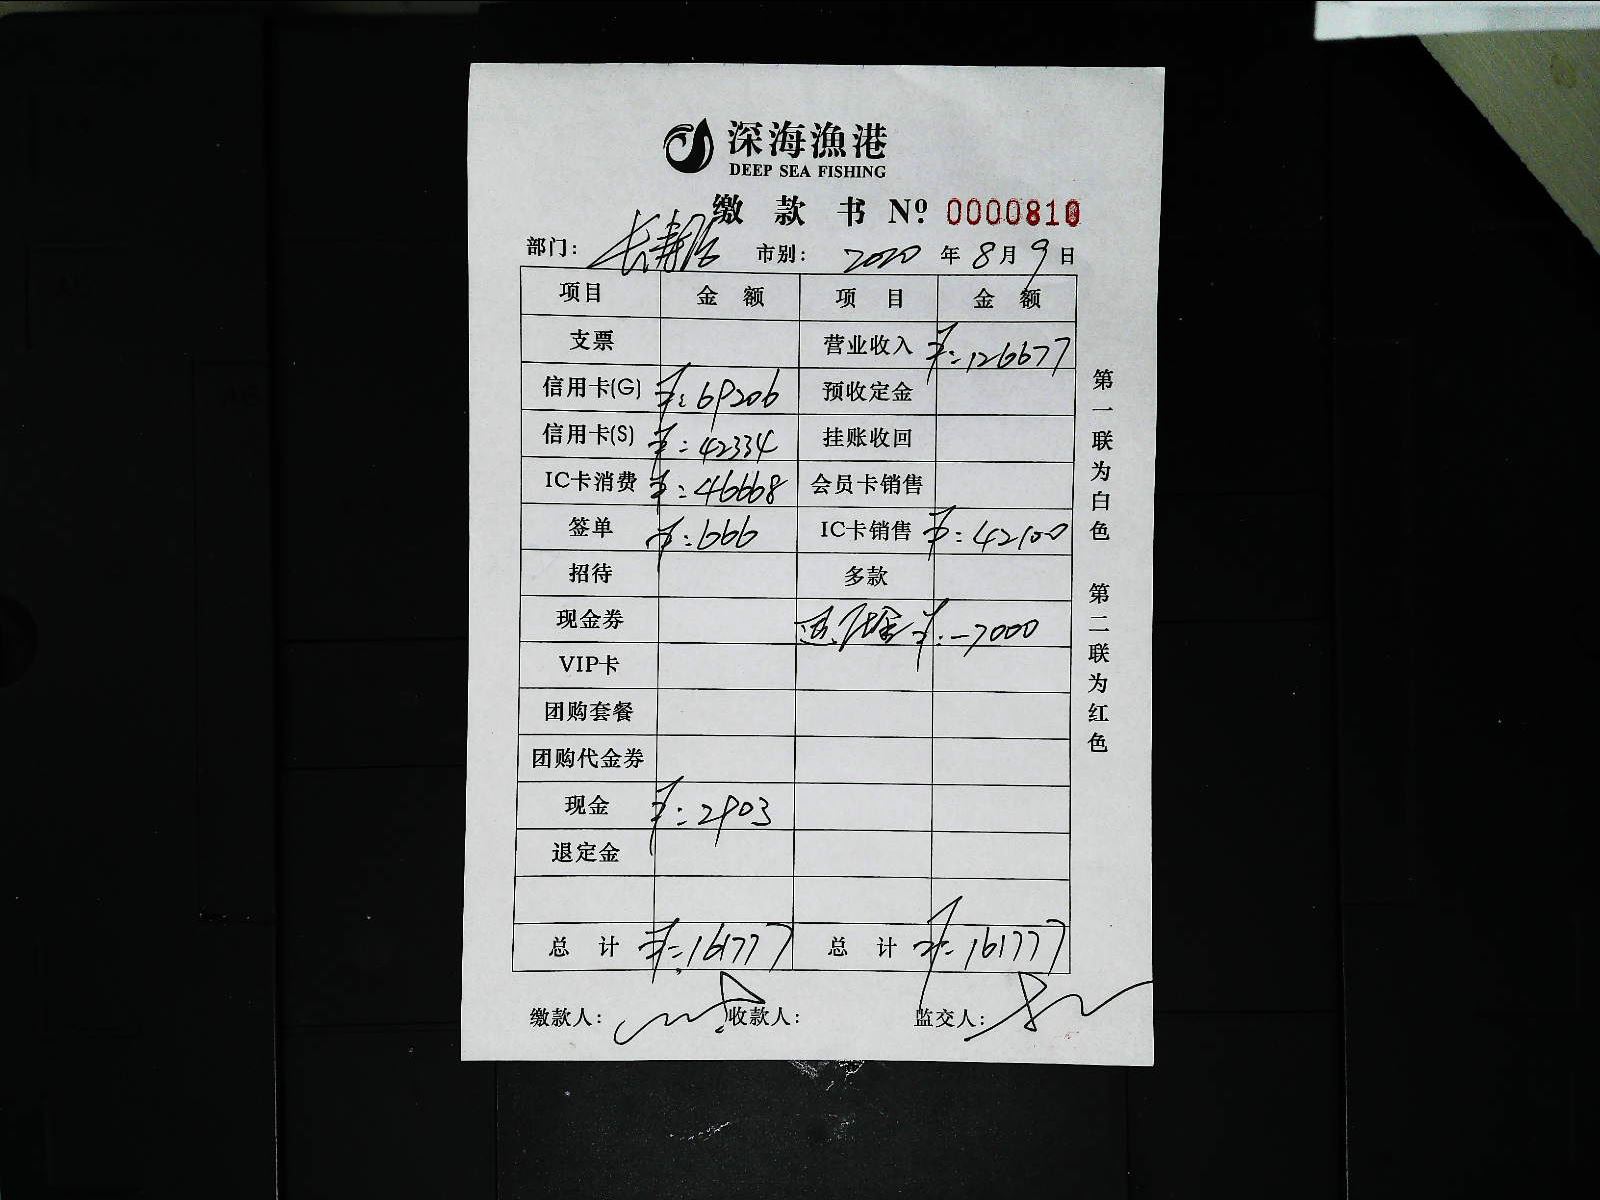 深海漁港
DEEP SEA FISHING
缴款书 Nº 0000810
部门: 长寿店 市别: 2020年8月9日
项目 金额 项目 金额
支票 营业收入 ¥:126677
信用卡(G) ¥:69206 预收定金
信用卡(S) ¥:42334 挂账收回
IC卡消费 ¥:46668 会员卡销售
签单 ¥:666 IC卡销售 ¥:42100
招待 多款
现金券 ¥:-7000
VIP卡
团购套餐
团购代金券
现金 ¥:2903
退定金
总计 ¥:161777 总计 ¥:161777
缴款人: 收款人: 监交人:
第一联为白色 第二联为红色